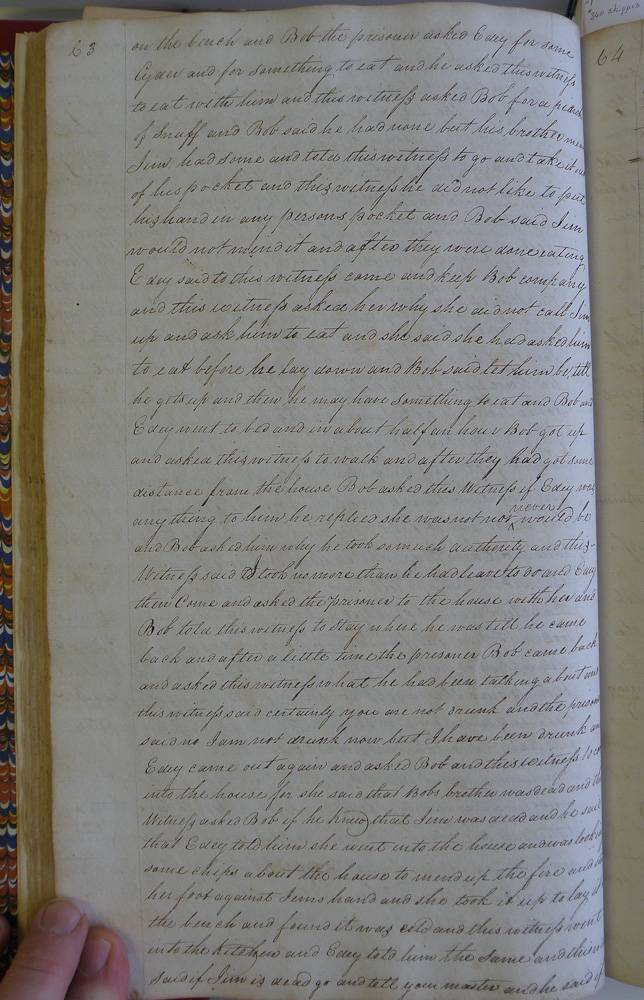 63
on the bench and Bob the prisoner asked Edey for some
Cyder and for something to eat and he asked this witness
to eat with him and this witness asked Bob for a
of Snuff and Bob said he had none but his brother
Jim had some and told this witness to go and take it out
of his pocket and this witness he did not like to put
his hand in any persons pocket and Bob said Jim
would not mend it and after they were done eating
Edey said to this witness come and keep Bob company
and this witness asked her why she did not call Jim
up and ask him to eat and she said she had asked him
to eat before he lay down and Bob said let him be, till
he gets up and then he may have something to eat and Bob and
Edey went to bed and in about half an hour Bob got up
and asked this witness to walk and after they had got some
distance from the house Bob asked this Witness if Edey was
any thing to him he replied she was not nor never would be
and Bob asked him why he took so much authority and this
Witness said I took no more than he had leave to do and Edey
then Come and asked the prisoner to the house with her and
Bob told this witness to stay where he was till he came
back and after a little time the prisoner Bob came back
and asked this witness what he had been talking about and
this witness said certainly you are not drunk and the prisoner
said no I am not drunk now but I have been drunk and
Edey came out again and asked Bob and this witness to
into the house for she said that Bobs brother was dead and
Witness asked Bob if he knew that Jim was dead and he said
that Edey told him she went into the house and was
some chips about the house to mend up the fire and
her foot against Jims hand and she took it up to lay it
the bench and found it was cold and this witness went
into the kitchen and Edey told him the same and this
said if Jim is dead go and tell your master and he said if
64